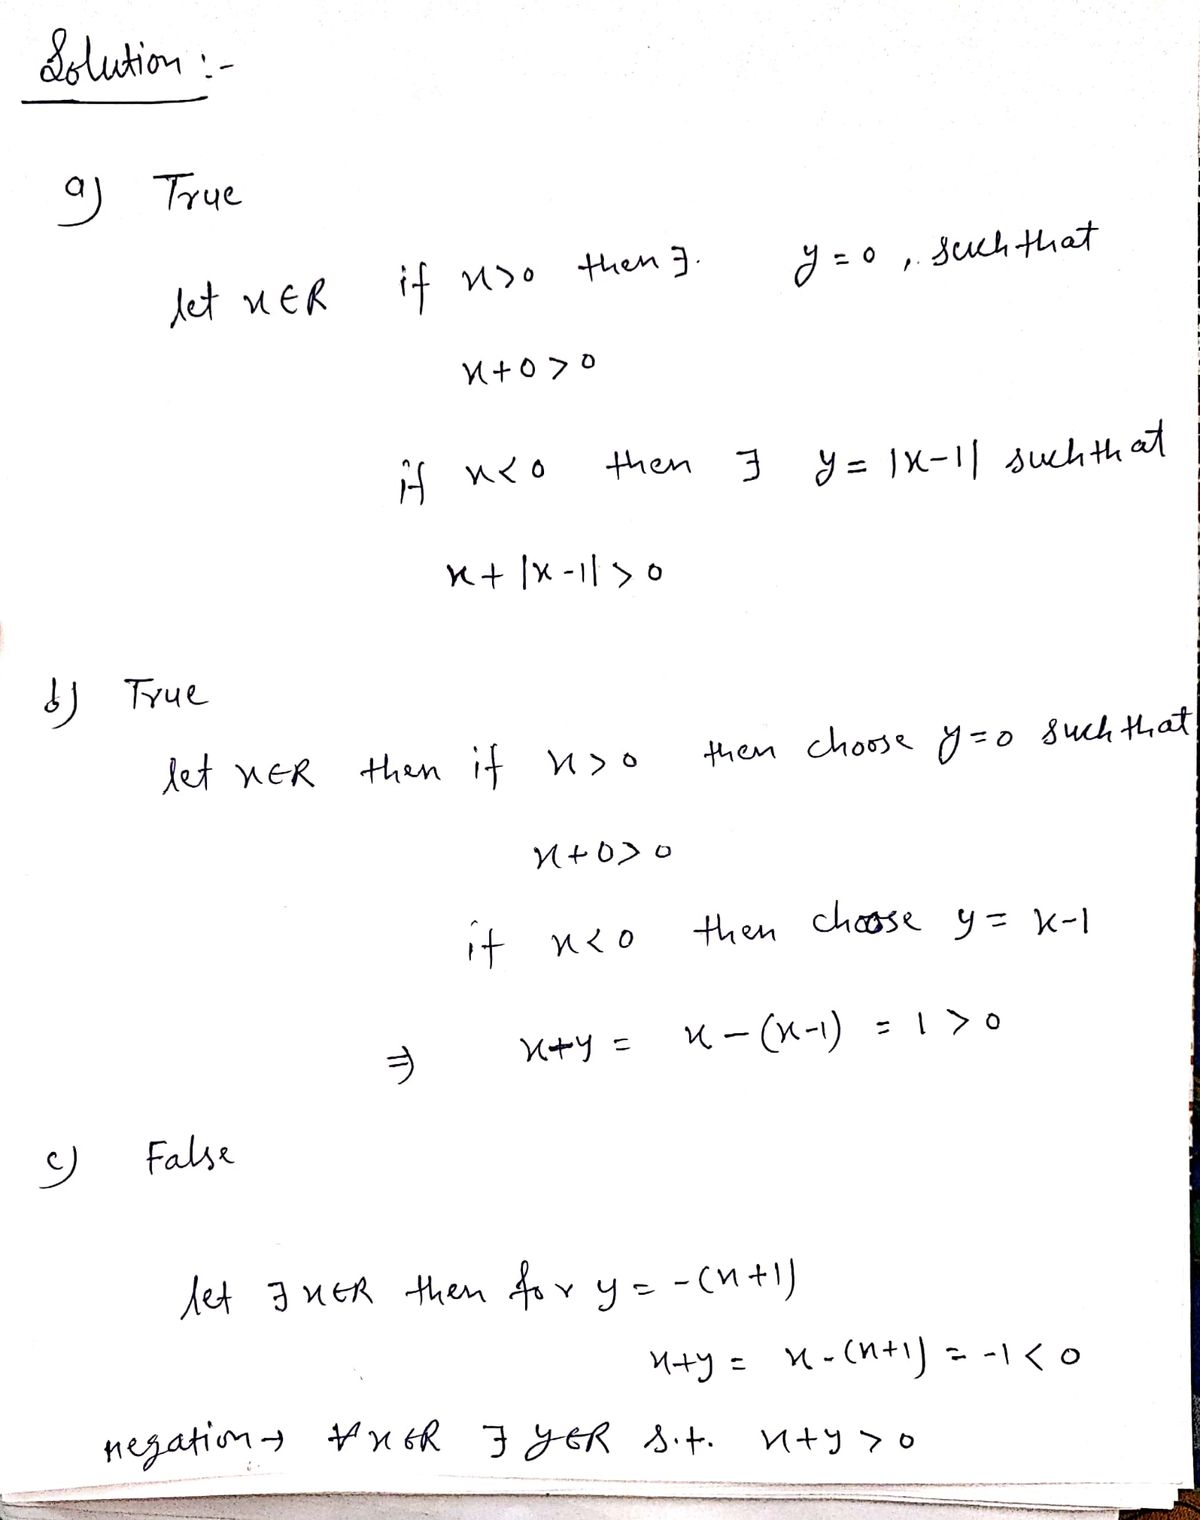 Solution :-
a) True
let x ∈ R if x > 0 then ∃. y = 0, such that
x + 0 > 0
if x < 0 then ∃ y = |x-1| such that
x + |x-1| > 0
b) True
let x ∈ R then if x > 0 then choose y = 0 such that
x + 0 > 0
if x < 0 then choose y = x-1
⇒ x+y = x - (x-1) = 1 > 0
c) False
let ∃ x ∈ R then for y = -(x+1)
x+y = x - (x+1) = -1 < 0
negation → ∀ x ∈ R ∃ y ∈ R s.t. x+y > 0